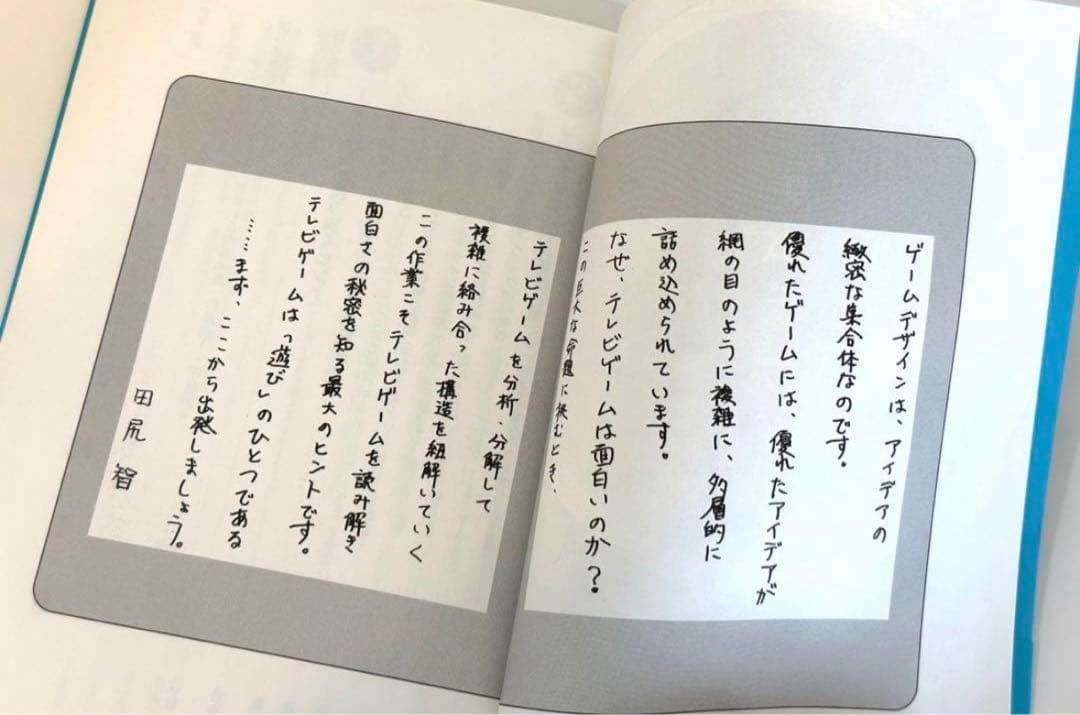 ゲームデザインは、アイデアの
緻密な集合体なのです。
優れたゲームには、優れたアイデアが
網の目のように複雑に、多層的に
詰め込められています。
なぜ、テレビゲームは面白いのか?
この巨大な命題に挑むとき、
テレビゲームを分析、分解して
複雑に絡み合った構造を紐解いていく
この作業こそテレビゲームを読み解き
面白さの秘密を知る最大のヒントです。
テレビゲームは「遊び」のひとつである
……まず、ここから出発しましょう。
田尻 智